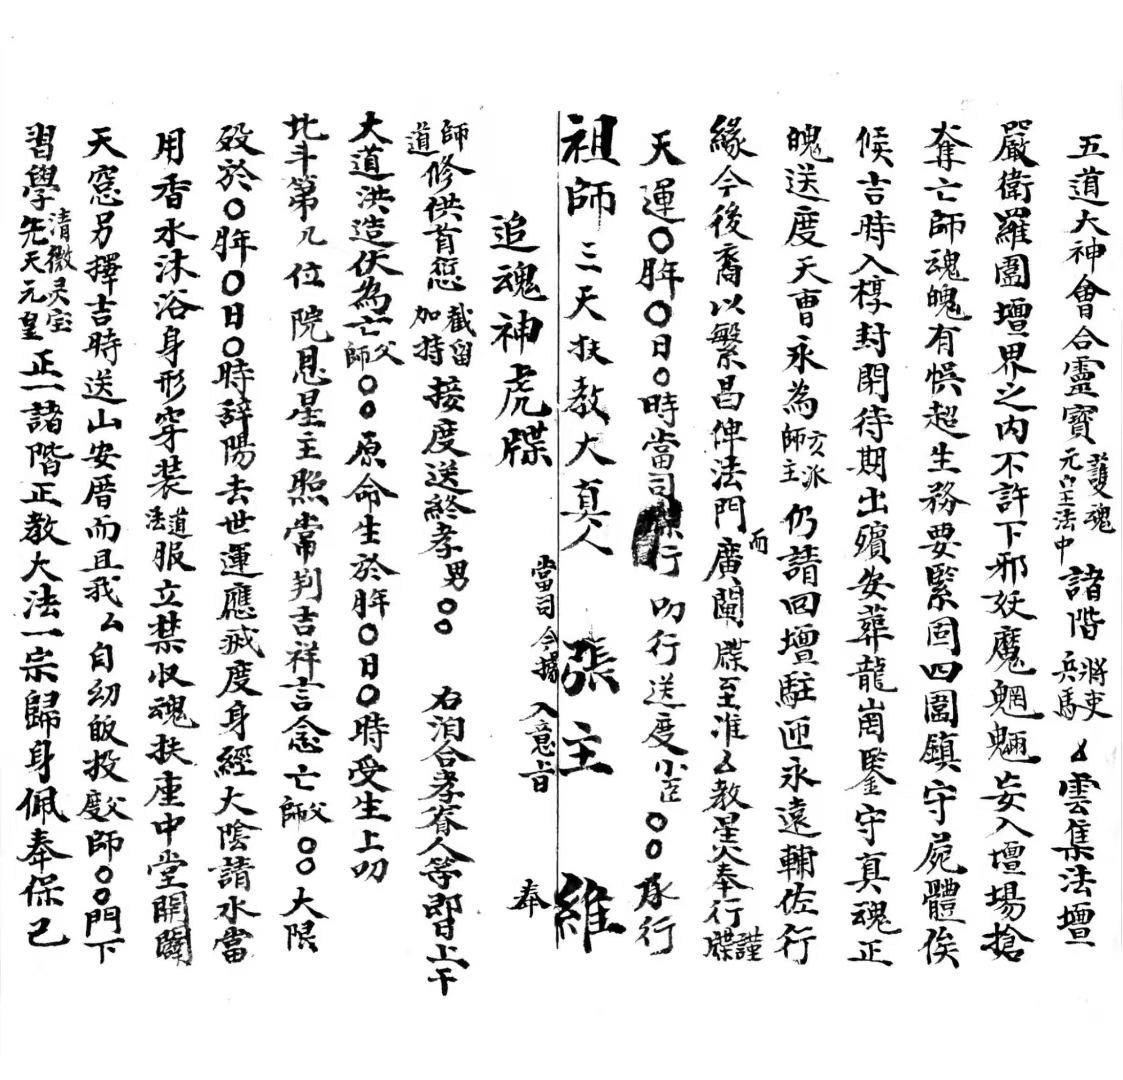 五道大神會合靈寶護魂元皇法中諸階將吏兵馬厶雲集法壇
嚴衛羅圍壇界之内不許下邪妖魔魍魎妄入壇場搶
奪亡師魂魄有悞超生務要緊固四圍鎮守屍體俟
候吉時入槨封閉待期出殯安葬龍崗鑒守真魂正
魄送度天曹永為亥派師主仍請回壇駐匝永遠輔佐行
緣今後裔以繁昌俾法門而廣闡牒至准厶教星火奉行謹牒
天運〇年〇日〇時當司行叨行送度小臣〇〇承行
祖師三天扶教大真人張主維
追魂神虎牒
當司今據入意旨奉
道師修供首愆截留加持接度送終孝男〇〇右洎合孝眷人等即日上干
大道洪造伏為亡父師〇〇原命生於年〇日〇時受生上叨
北斗第几位院恩星主照常判吉祥言念亡父師〇〇大限
歿於〇年〇日〇時辭陽去世運應滅度身經大陰請水當
用香水沐浴身形穿装道法服立禁收魂扶座中堂開闢
天窓另擇吉時送山安厝而且我厶自幼皈投父度師〇〇門下
習學清微灵宝先天元皇正一諸階正教大法一宗歸身佩奉保己